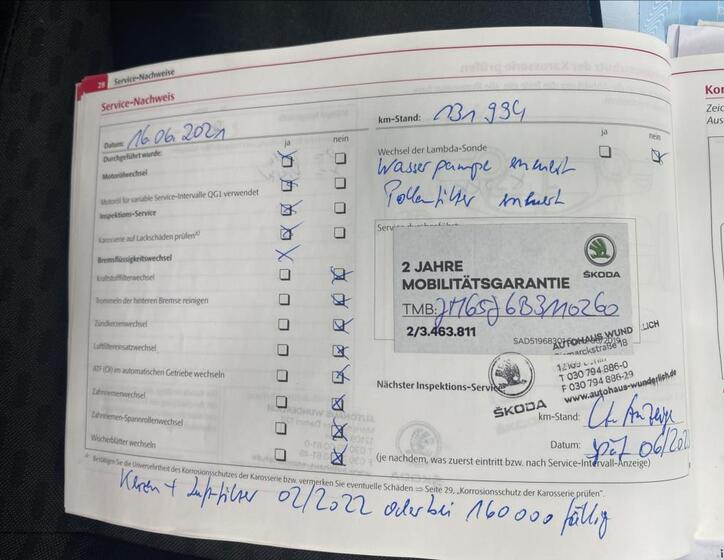 28 Service-Nachweise
Service-Nachweis
Datum: 16.06.2021
ja
nein
Durchgeführt wurde:
Motorölwechsel
Motoröl für variable Service-Intervalle QG1 verwendet
Inspektions-Service
Karosserie auf Lackschäden prüfen a)
Bremsflüssigkeitswechsel
Kraftstofffilterwechsel
Trommeln der hinteren Bremse reinigen
Zündkerzenwechsel
Luftfiltereinsatzwechsel
ATF (Öl) im automatischen Getriebe wechseln
Zahnriemenwechsel
Zahnriemen-Spannrollenwechsel
Wischerblätter wechseln
km-Stand: 131 994
ja
nein
Wechsel der Lambda-Sonde
Wasserpumpe erneuert
Pollenfilter erneuert
2 JAHRE
MOBILITÄTSGARANTIE
ŠKODA
TMB:
2/3.463.811
AUTOHAUS WUND LICH
T 030 794 886-0
F 030 794 886-29
www.autohaus-wunderlich.de
ŠKODA
Nächster Inspektions-Service
km-Stand: Lt. Anzeige
Datum: spät 06/202
(je nachdem, was zuerst eintritt bzw. nach Service-Intervall-Anzeige)
a) Bestätigen Sie die Unversehrtheit des Korrosionsschutzes der Karosserie bzw. vermerken Sie eventuelle Schäden ⇒ Seite 29, „Korrosionsschutz der Karosserie prüfen".
Kerzen + Luftfilter 02/2022 oder bei 160000 fällig
Kor
Zeic
Aus